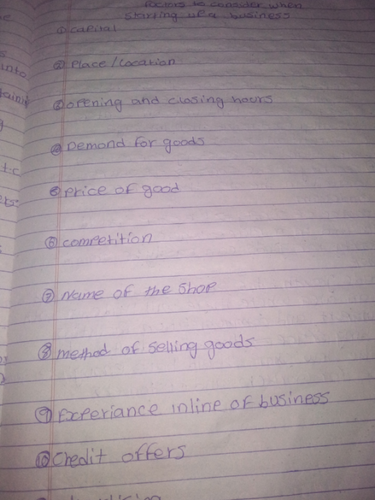 factors to consider when
starting up a business
① capital
② Place/Location
③ opening and closing hours
④ Demand for goods
⑤ Price of good
⑥ competition
⑦ Name of the shop
⑧ method of selling goods
⑨ Experiance inline of business
⑩ Credit offers